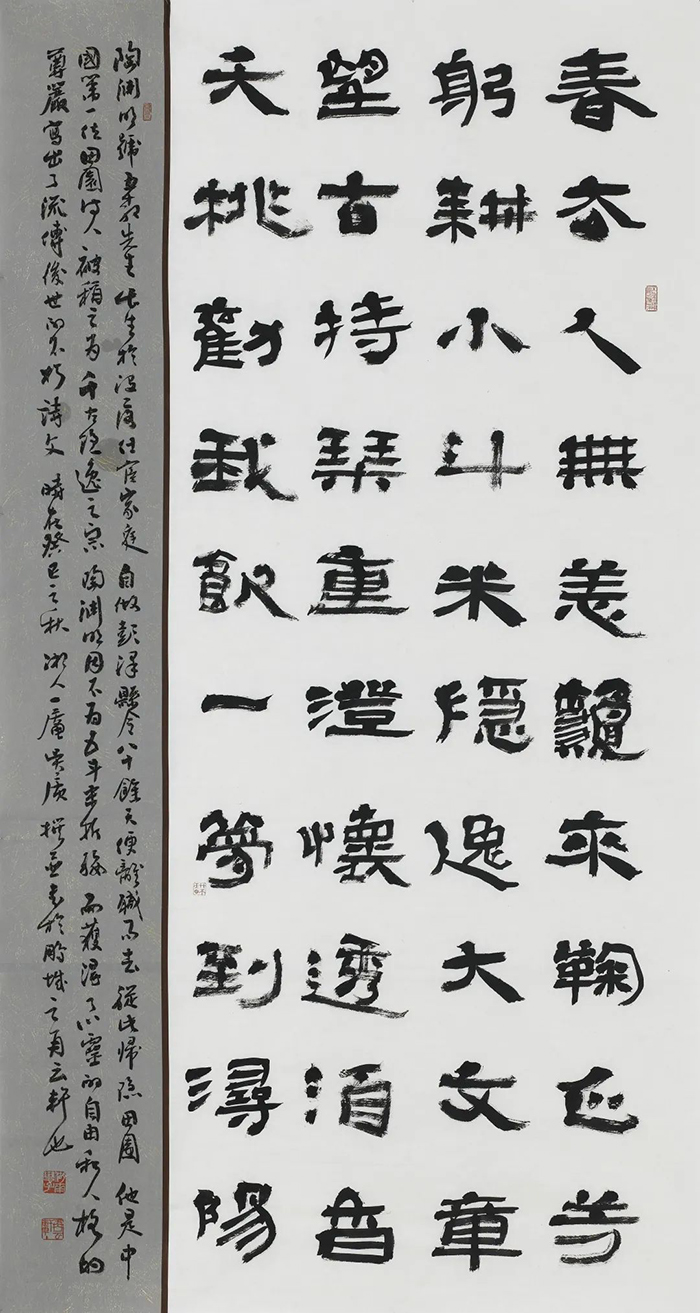 春去人無恙龝來鞠正芳
躬耕小斗米隱逸大文章
望古持琴重澄懷透酒香
夭桃勸我飲一夢到潯陽
陶淵明號五柳先生出生於没落仕宦家庭自做彭澤縣令八十餘天便辭職而去從此歸隱田園他是中
國第一位田園詩人被稱之為千古隱逸之宗陶淵明因不為五斗米折腰而獲得了心靈的自由和人格的
尊嚴寫出了流傳後世的不朽詩文時在癸巳之秋人一廬撰并書於鵬城之云軒也